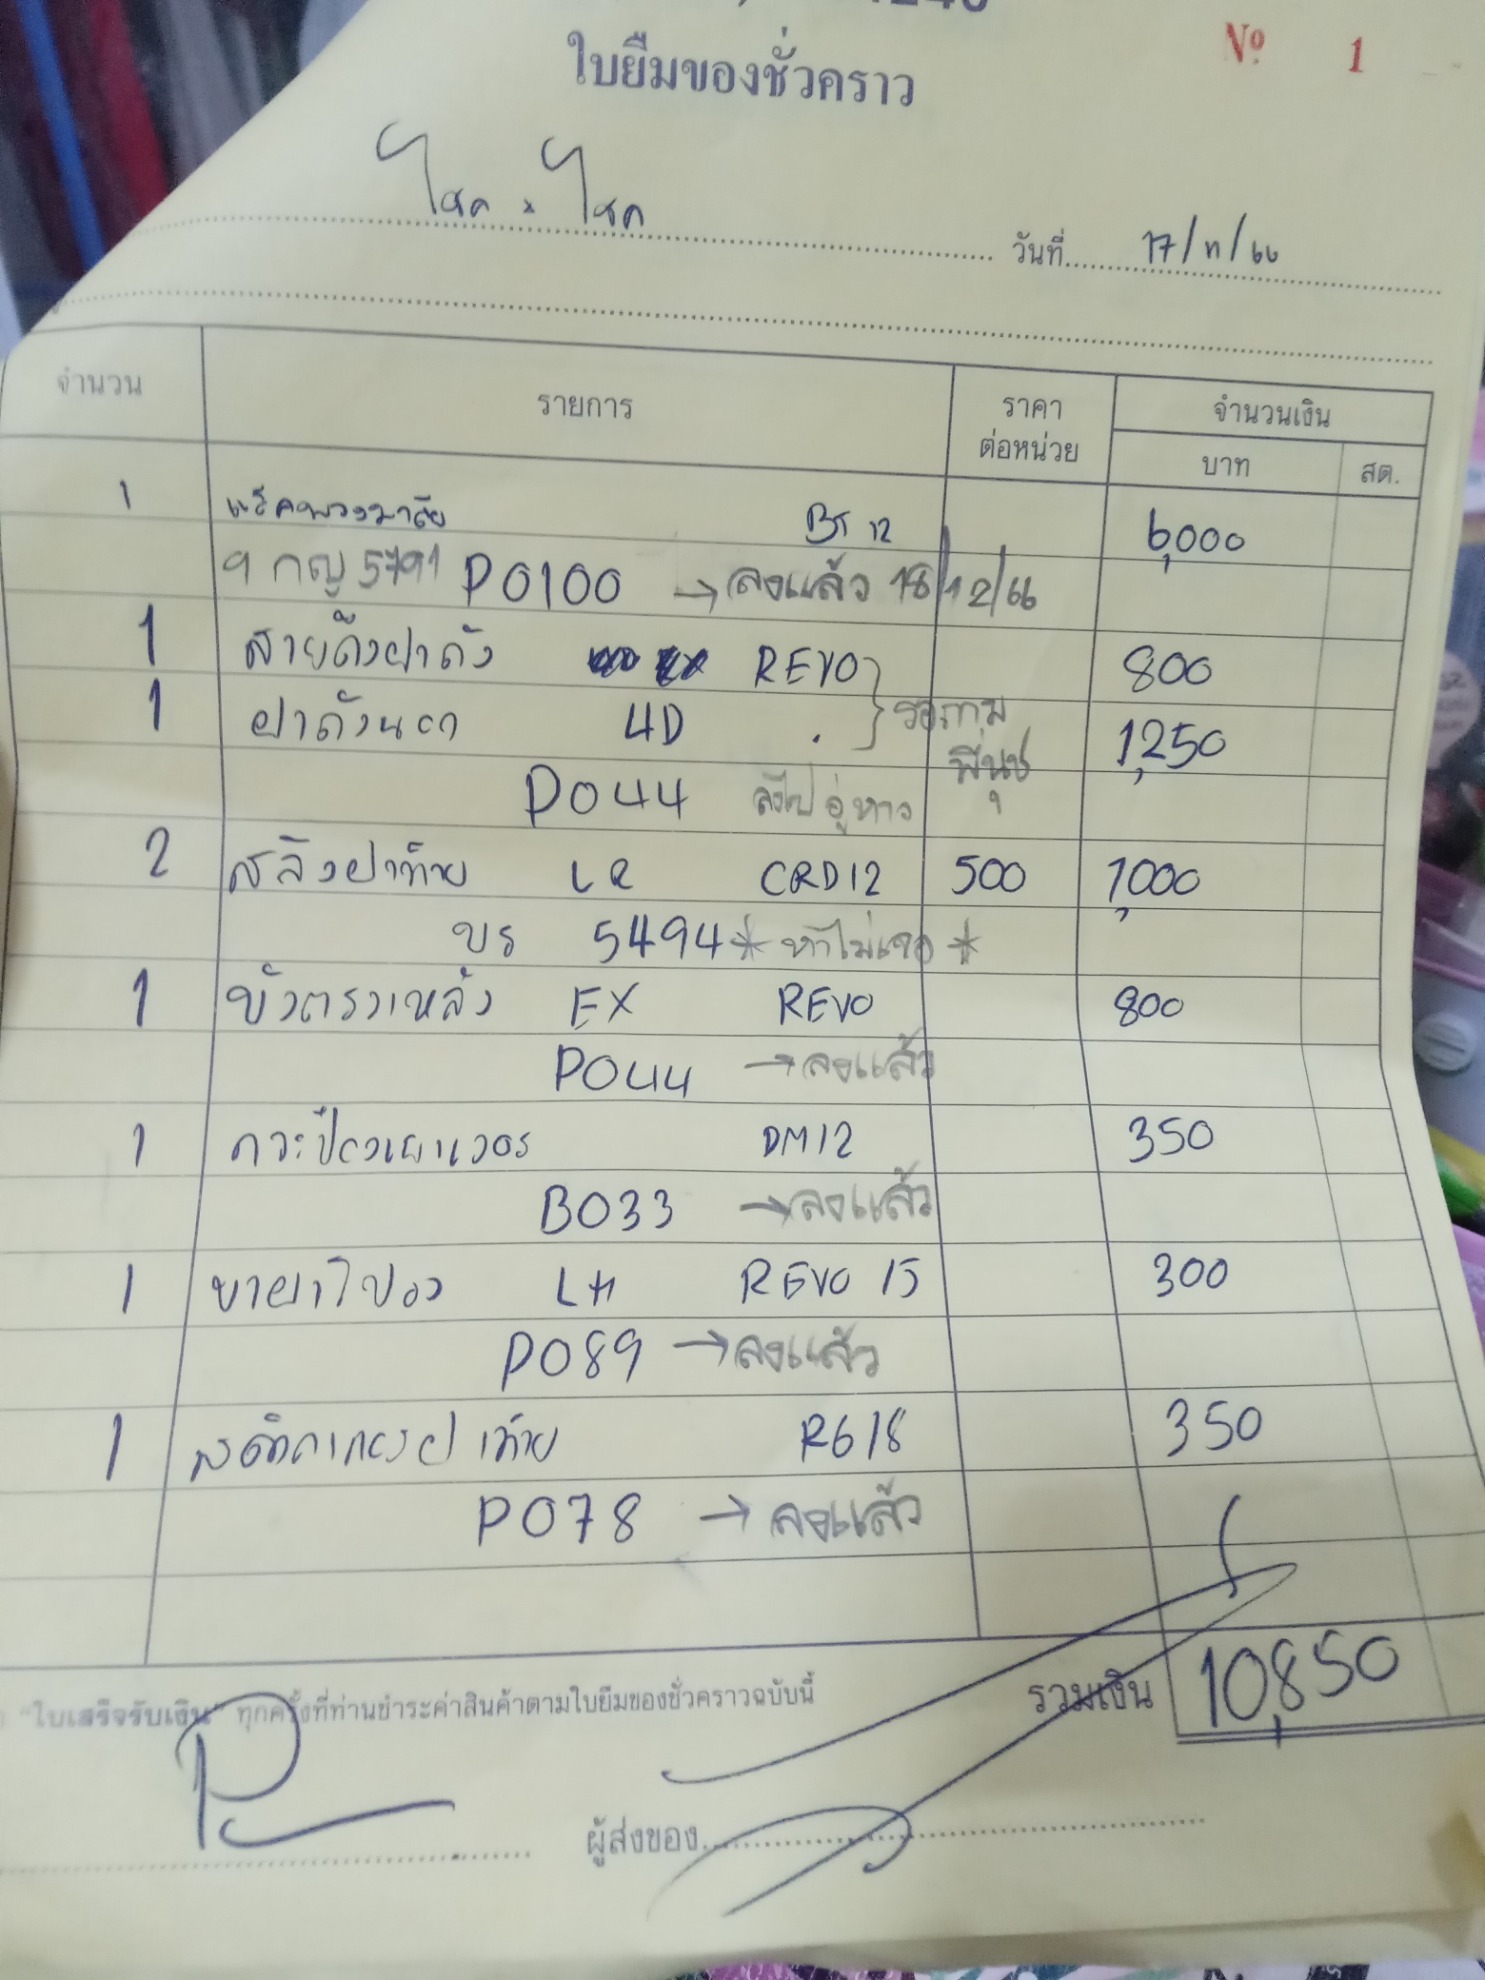 ใบยืมของชั่วคราว
Nº 1
โชค . โชค วันที่ 17/11/66
จำนวน รายการ ราคาต่อหน่วย จำนวนเงิน
บาท สต.
1 แร็คพวงมาลัย BT 12 6,000
9 กญ 5791 P0100 → ลงแล้ว 18/12/66
1 สายดึงฝาถัง REVO 800
1 ฝาถังนอก 4D รอถาม 1,250
พี่นุช
P044 ลงไป อู่หาว
2 สลิงฝาท้าย LR CRD12 500 1,000
บร 5494 * หาไม่เจอ *
1 บังตรงหลัง EX REVO 800
P044 → ลงแล้ว
1 DM12 350
B033 → ลงแล้ว
1 ขาฝาโปรง LH REVO 15 300
P089 → ลงแล้ว
1 R618 350
P078 → ลงแล้ว
"ใบเสร็จรับเงิน" ทุกครั้งที่ท่านชำระค่าสินค้าตามใบยืมของชั่วคราวฉบับนี้ รวมเงิน 10,850
ผู้ส่งของ